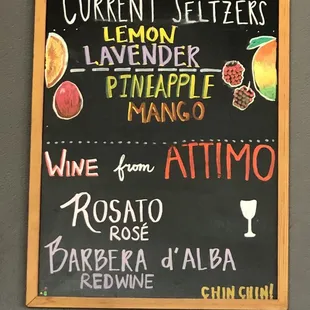 CURRENT SELTZERS
LEMON
LAVENDER
PINEAPPLE
MANGO
WINE from ATTIMO
ROSATO
ROSÉ
BARBERA d'ALBA
RED WINE
CHIN CHIN!